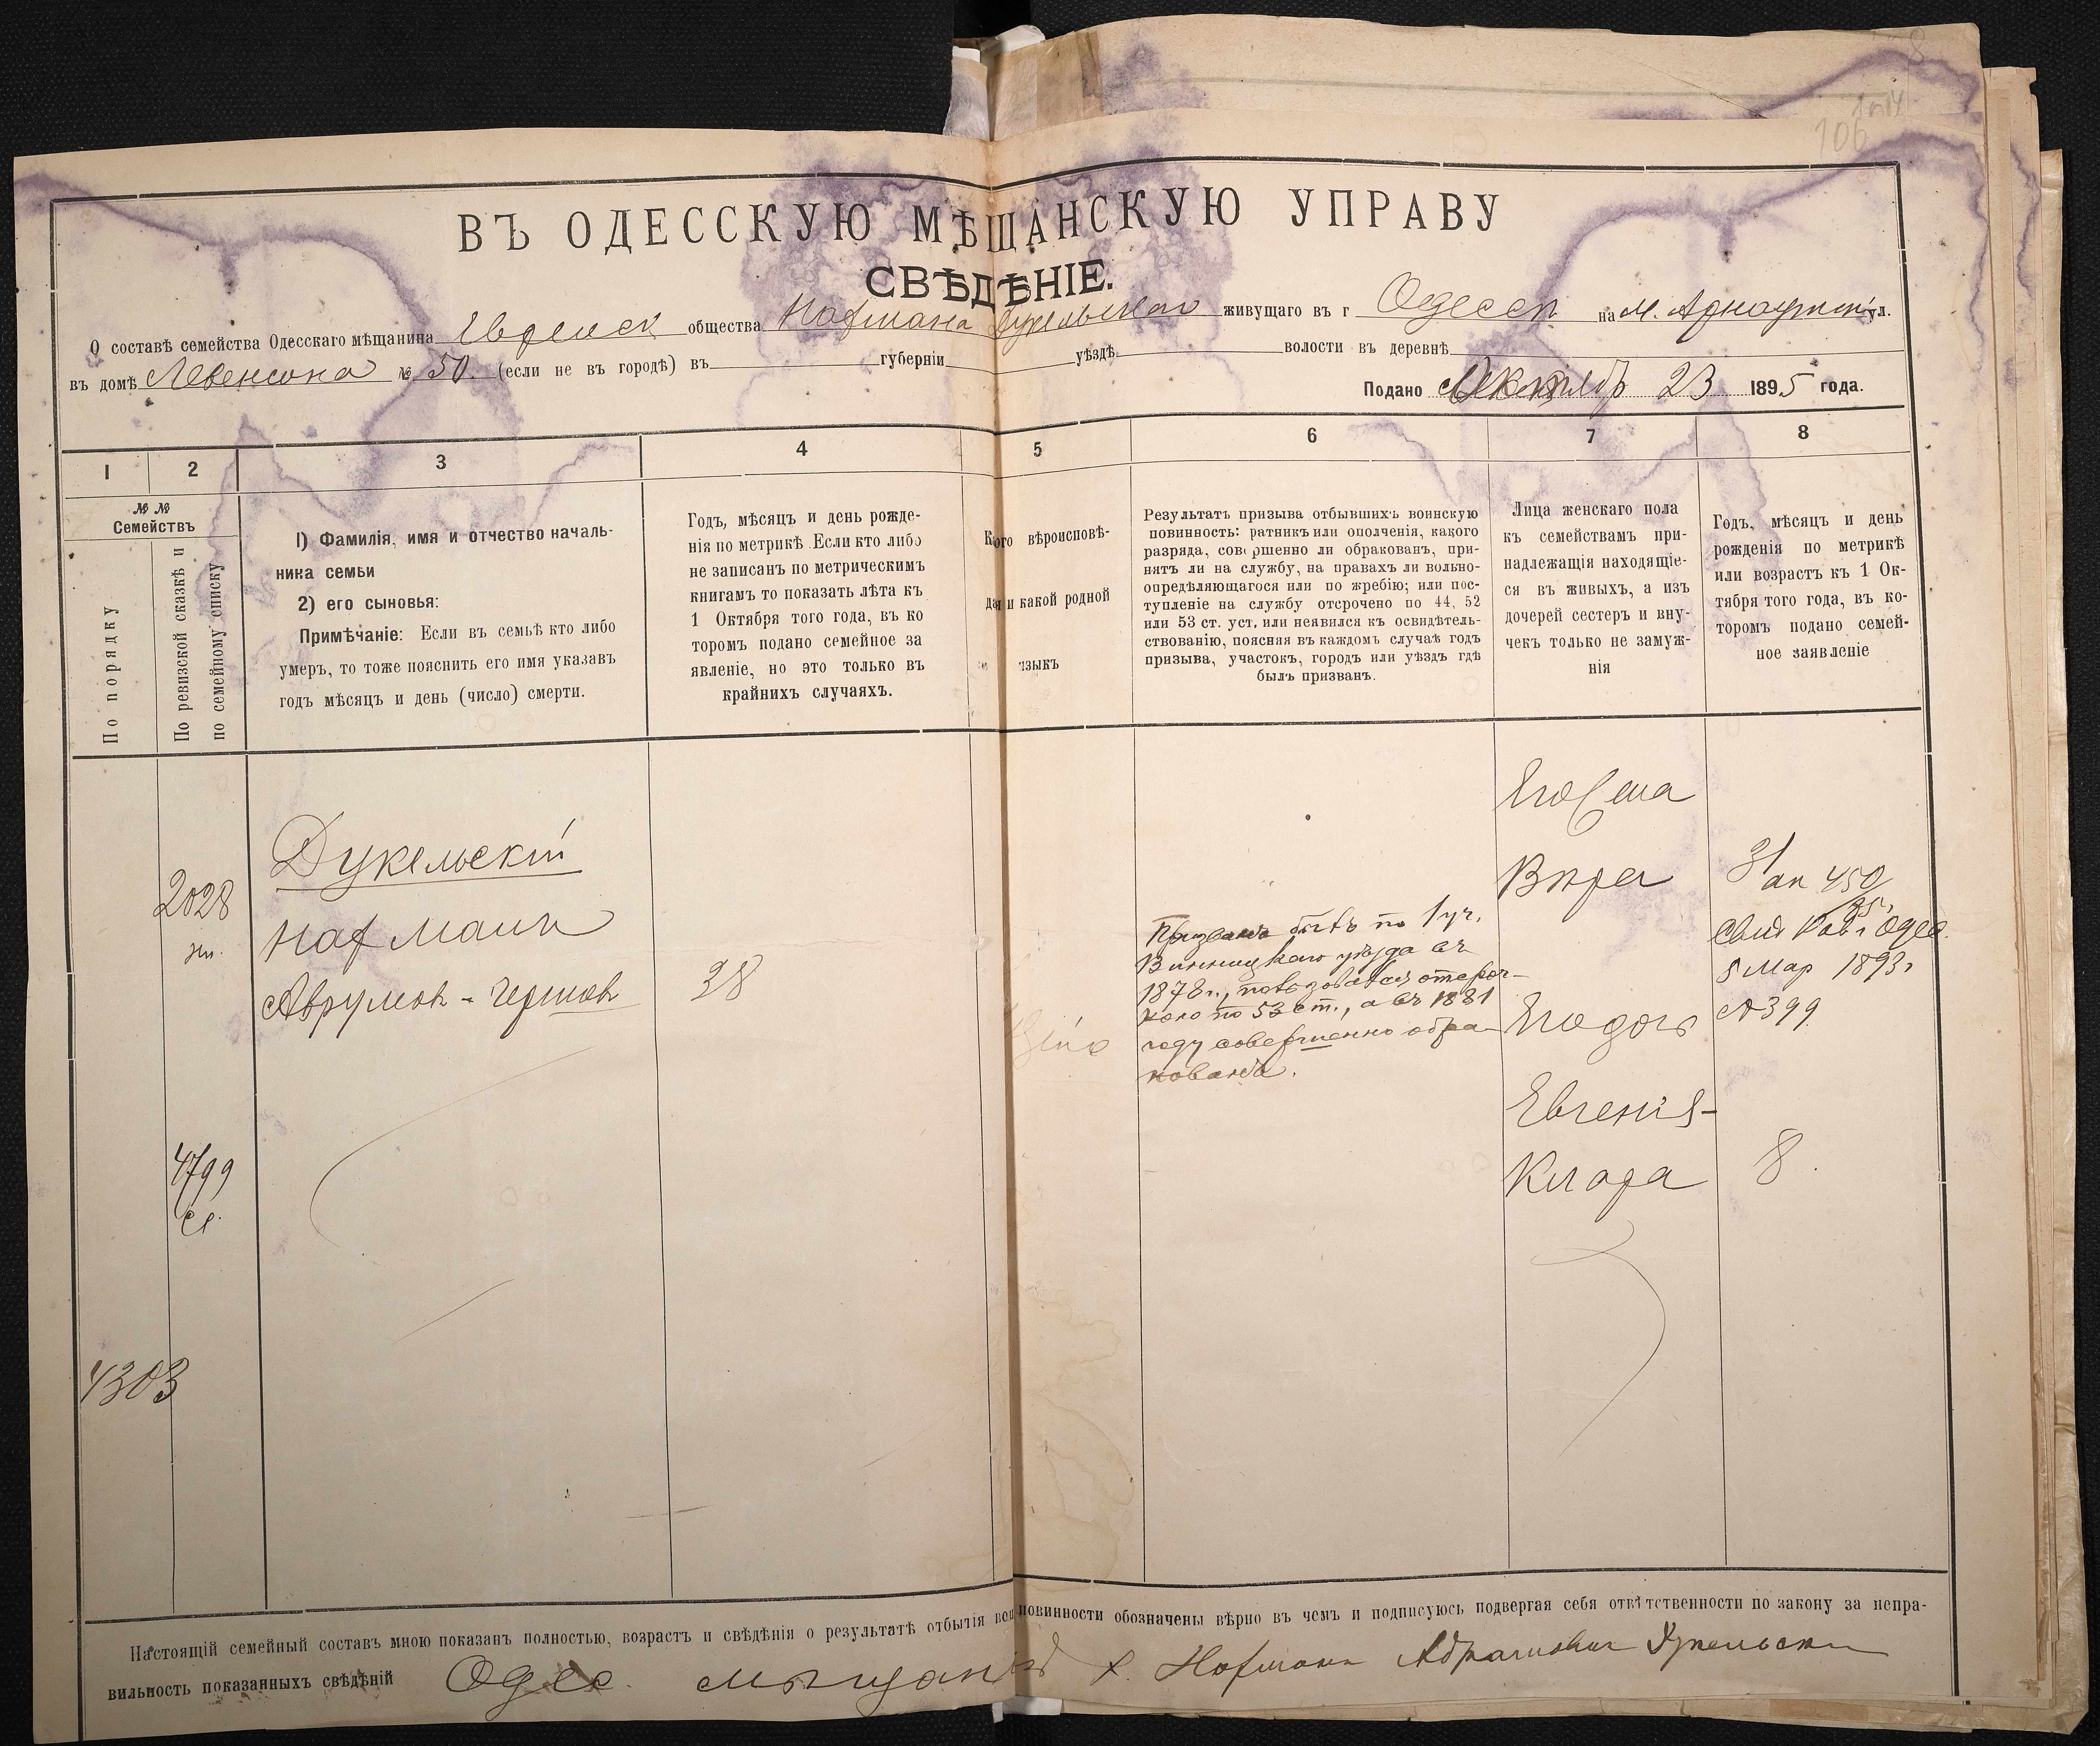 106
ВЪ ОДЕССКУЮ МѢЩАНСКУЮ УПРАВУ
СВѢДѢНІЕ.
О составѣ семейства Одесскаго мѣщанина Еврейск общества Нафмана Дукельскаго живущаго въ г Одессѣ на М. Арнаутской ул.
въ домѣ Левенсона № 50. (если не въ городѣ) въ губерніи уѣздѣ волости въ деревнѣ
Подано 23 1895 года.
1 2 3 4 5 6 7 8
№ №
Семействъ
По порядку
По ревизской сказкѣ и
по семейному списку
1) Фамилія, имя и отчество началь-
ника семьи
2) его сыновья:
Примѣчаніе: Если въ семьѣ кто либо
умеръ, то тоже пояснить его имя указавъ
годъ мѣсяцъ и день (число) смерти.
Годъ, мѣсяцъ и день рожде-
нія по метрикѣ. Если кто либо
не записанъ по метрическимъ
книгамъ то показать лѣта къ
1 Октября того года, въ ко
торомъ подано семейное за
явленіе, но это только въ
крайнихъ случаяхъ.
Кого вѣроисповѣ-
и какой родной
языкъ
Результатъ призыва отбывшихъ воинскую
повинность: ратникъ или ополченія, какого
разряда, совершенно ли обракованъ, при-
нятъ ли на службу, на правахъ ли вольно-
опредѣляющагося или по жребію; или пос-
тупленіе на службу отсрочено по 44, 52
или 53 ст. уст. или неявился къ освидѣтель-
ствованію, поясняя въ каждомъ случаѣ годъ
призыва, участокъ, городъ или уѣздъ гдѣ
былъ призванъ.
Лица женскаго пола
къ семействамъ при-
надлежащія находящіе-
ся въ живыхъ, а изъ
дочерей сестеръ и вну-
чекъ только не замуж-
нія
Годъ, мѣсяцъ и день
рожденія по метрикѣ
или возрастъ къ 1 Ок-
тября того года, въ ко-
торомъ подано семей-
ное заявленіе
2028
Дукельскій
Нафманъ
Аврумов-Гершов
38
Призванъ бытъ по 1 уч.
Винницкаго уѣзда въ
1878 г., пользовался отсроч-
кою по 53 ст., а въ 1881
году совершенно обра-
кованъ.
Его жена
Вѣра
31
450
95
Одес.
5 Мар 1893 г
№399
Его дочь
Евгенія-
Клара
8.
4799
4303
Настоящій семейный составъ мною показанъ полностью, возрастъ и свѣдѣнія о результатѣ отбытія воинповинности обозначены вѣрно въ чемъ и подписуюсь подвергая себя отвѣтственности по закону за непра-
вильность показанныхъ свѣдѣній Одес. мѣщанинъ Нафманъ Абрамовичъ Дукельски